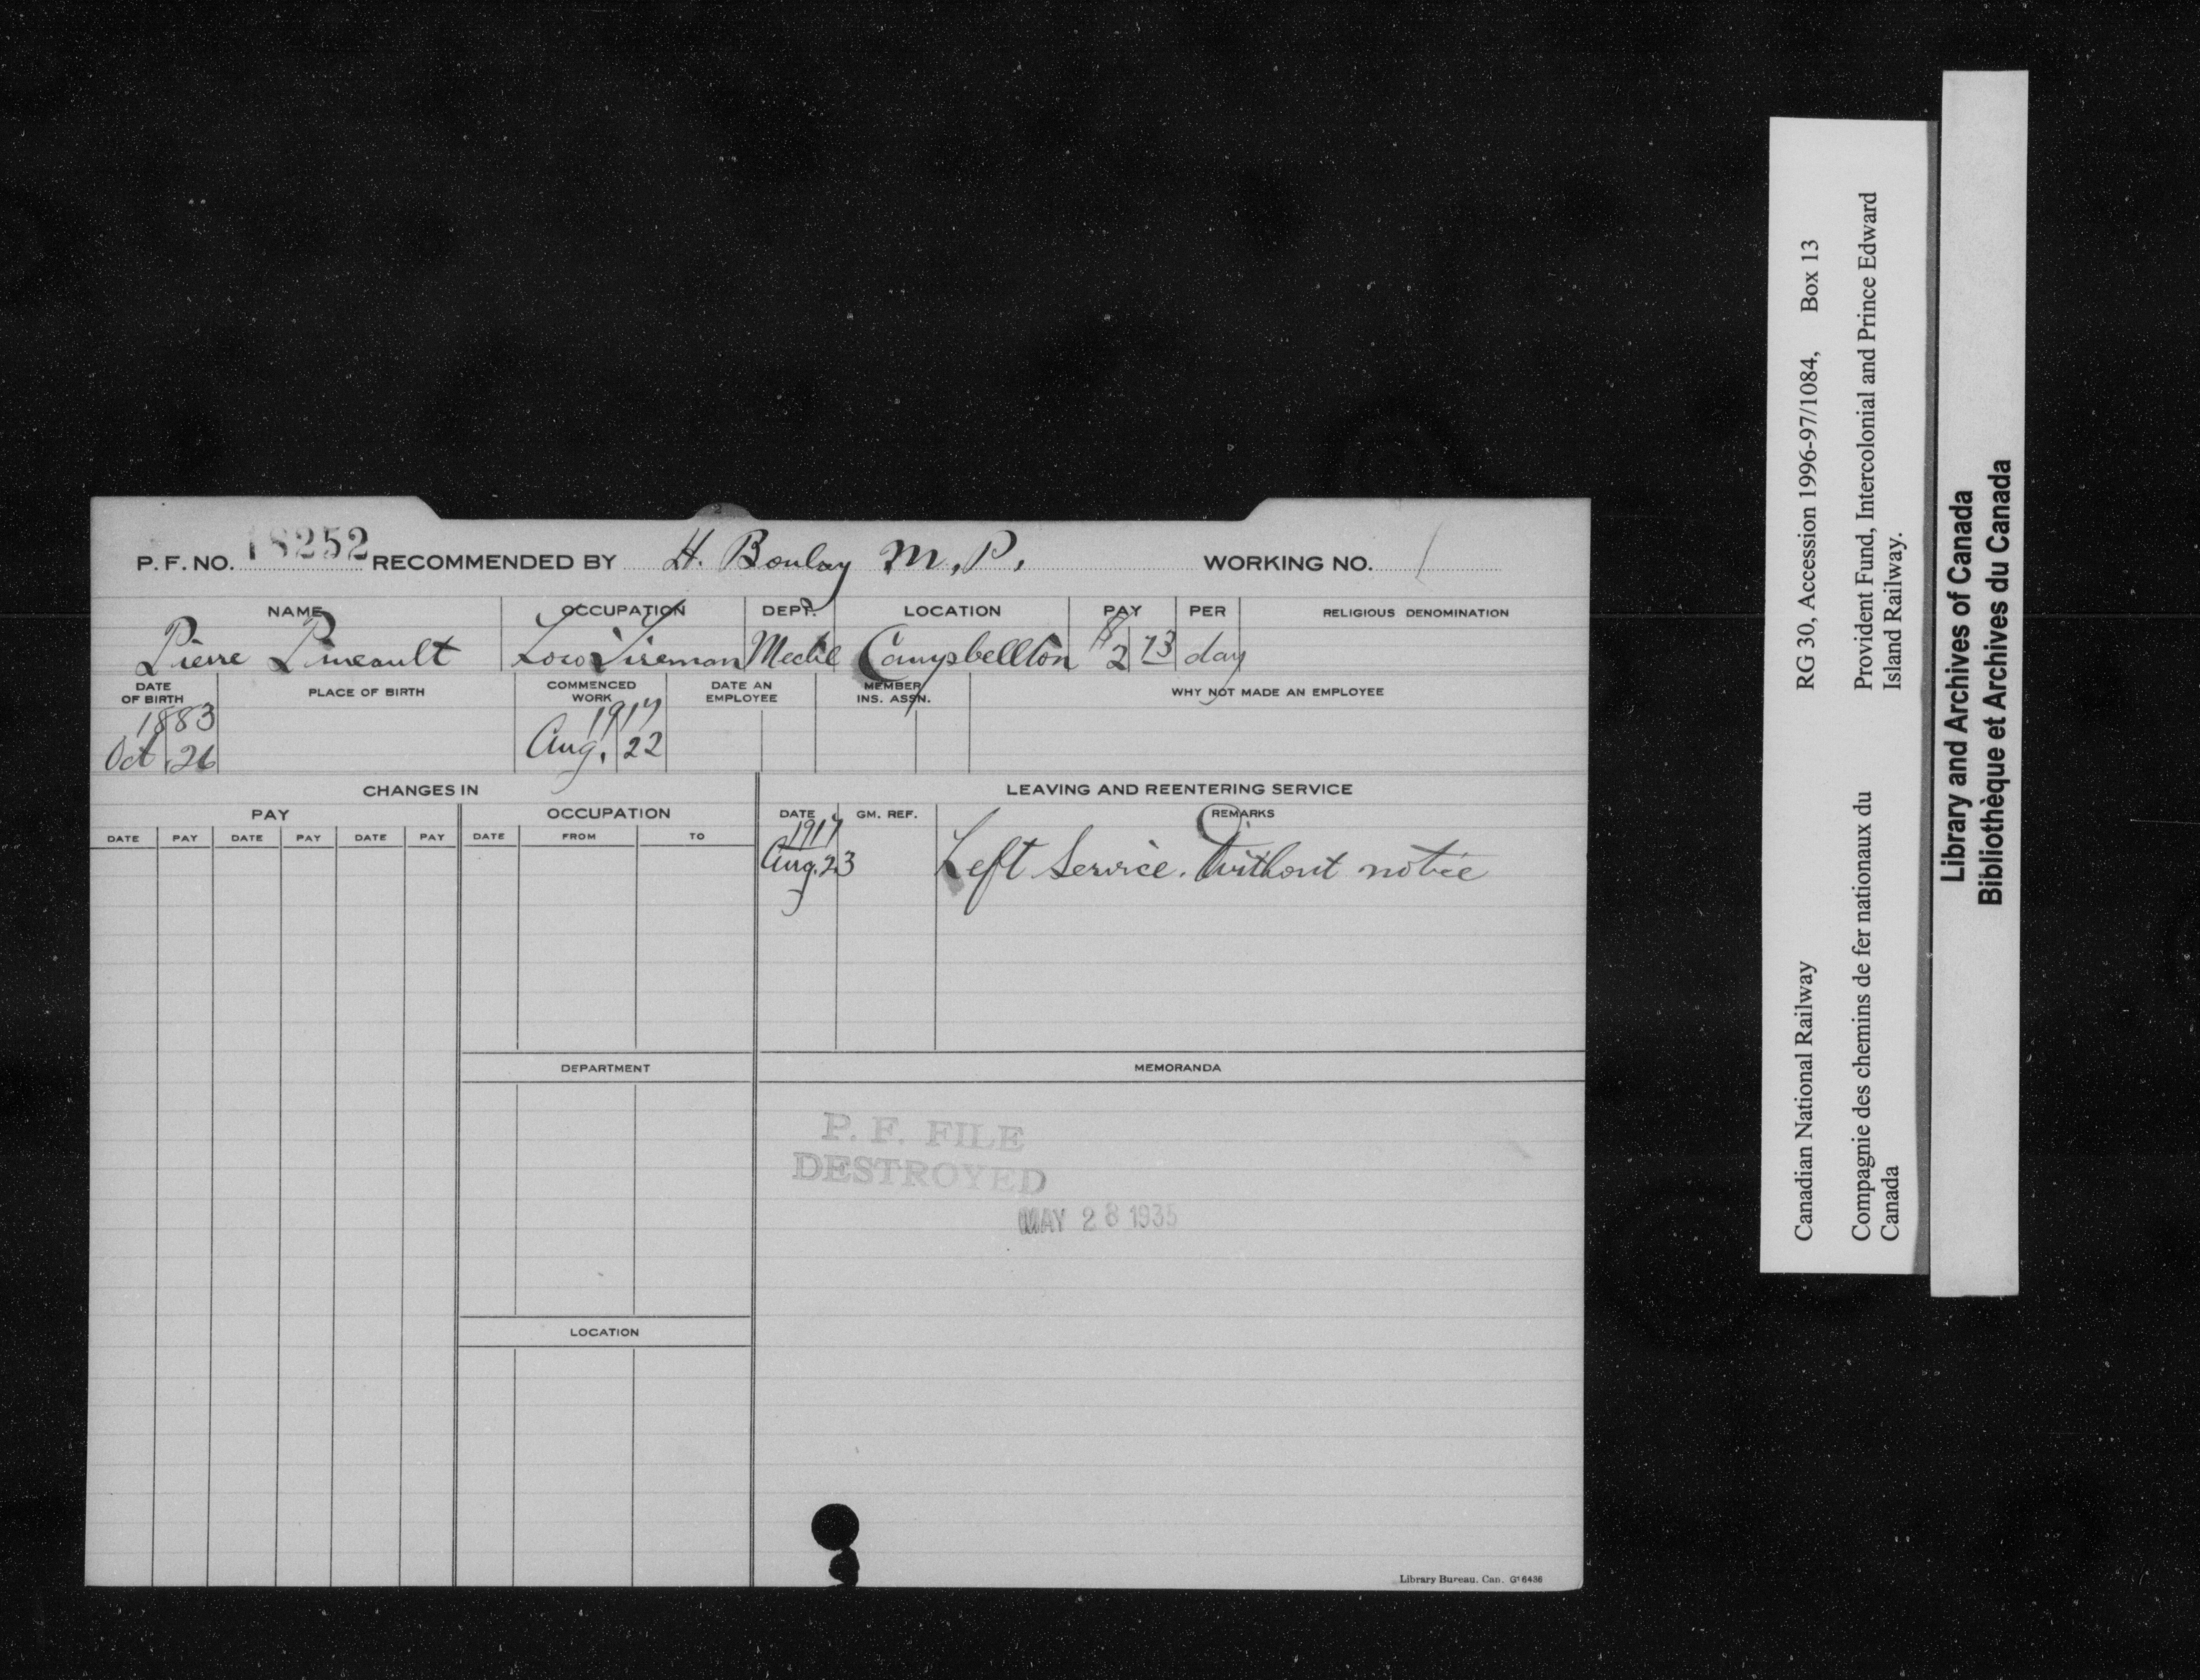 P. F. NO. 18252 RECOMMENDED BY H. Boulay M.P. WORKING NO. 1
NAME OCCUPATION DEPT. LOCATION PAY PER RELIGIOUS DENOMINATION
Pierre Pineault Loco Fireman Mechl Campbellton $2 73 day
DATE OF BIRTH PLACE OF BIRTH COMMENCED WORK DATE AN EMPLOYEE MEMBER INS. ASSN. WHY NOT MADE AN EMPLOYEE
1883 1917
Oct 26 Aug. 22
CHANGES IN LEAVING AND REENTERING SERVICE
PAY OCCUPATION DATE GM. REF. REMARKS
DATE PAY DATE PAY DATE PAY DATE FROM TO
1917
Aug. 23 Left Service. Without notice
DEPARTMENT MEMORANDA
P. F. FILE
DESTROYED
MAY 28 1935
LOCATION
Library Bureau. Can. G16436
Canadian National Railway RG 30, Accession 1996-97/1084, Box 13
Compagnie des chemins de fer nationaux du Provident Fund, Intercolonial and Prince Edward
Canada Island Railway.
Library and Archives of Canada
Bibliothèque et Archives du Canada